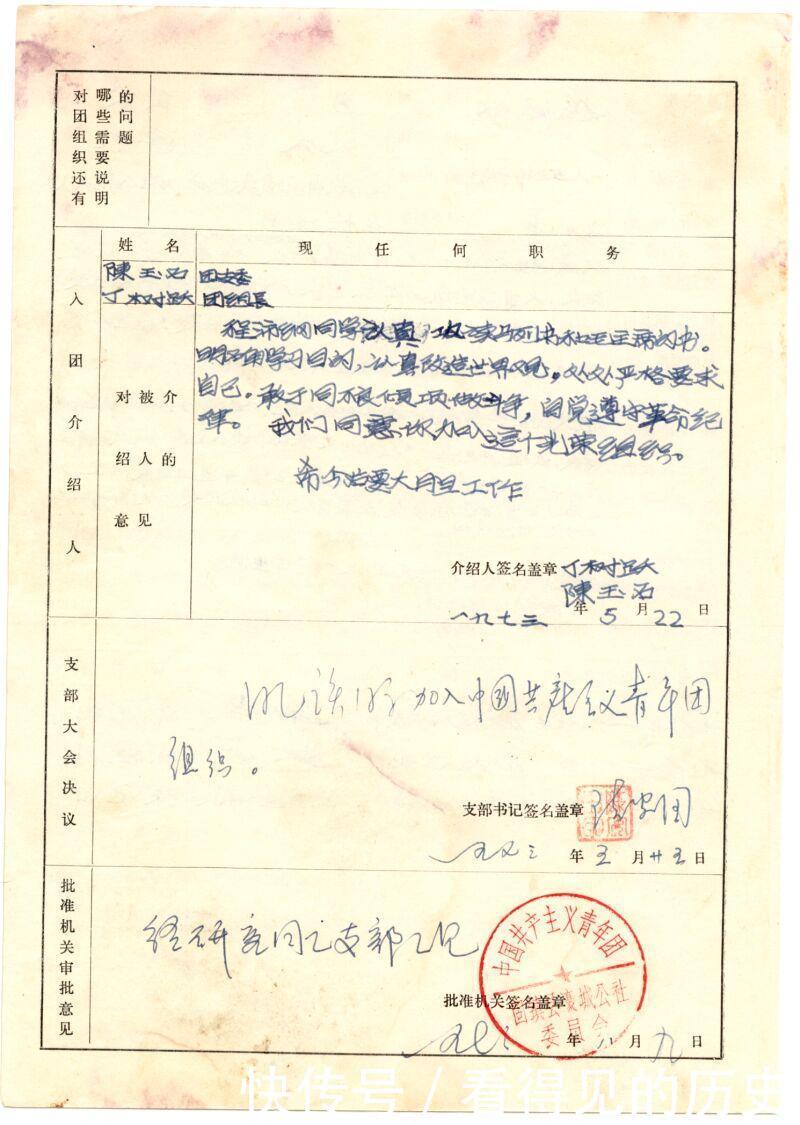 对团组织还有
哪些需要说明
的问题
入团介绍人
姓名
现任何职务
陳玉石 团支委
丁树跃 团组长
对被介
绍人的
意见
同学认真攻读马列书和毛主席的书。
明确学习目的，认真改造世界观。处处严格要求
自己。敢于同不良倾项做斗争，自觉遵守革命纪
律。我们同意你加入这个光荣组织。
希今后要大胆工作
介绍人签名盖章 丁树跃
陳玉石
一九七三年5月22日
支部大会决议
加入中國共产主义青年团
组织。
支部书记签名盖章
年五月廿五日
批准机关审批意见
经研究同意支部意见
中国共产主义青年团
公社
委员会
批准机关签名盖章
年 月九日
快传号/看得见的历史